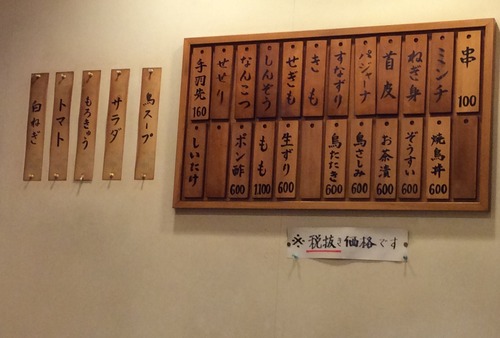 串 100
ミンチ
ねぎ身
首皮
パジャーナ
すなずり
きも
せぎも
しんぞう
なんこつ
せせり
手羽先 160
焼鳥丼 600
ぞうすい 600
お茶漬 600
鳥さしみ 600
鳥たたき 600
生ずり 600
もも 1100
ポン酢 600
しいたけ
鳥スープ
サラダ
もろきゅう
トマト
白ねぎ
※ 税抜き価格です